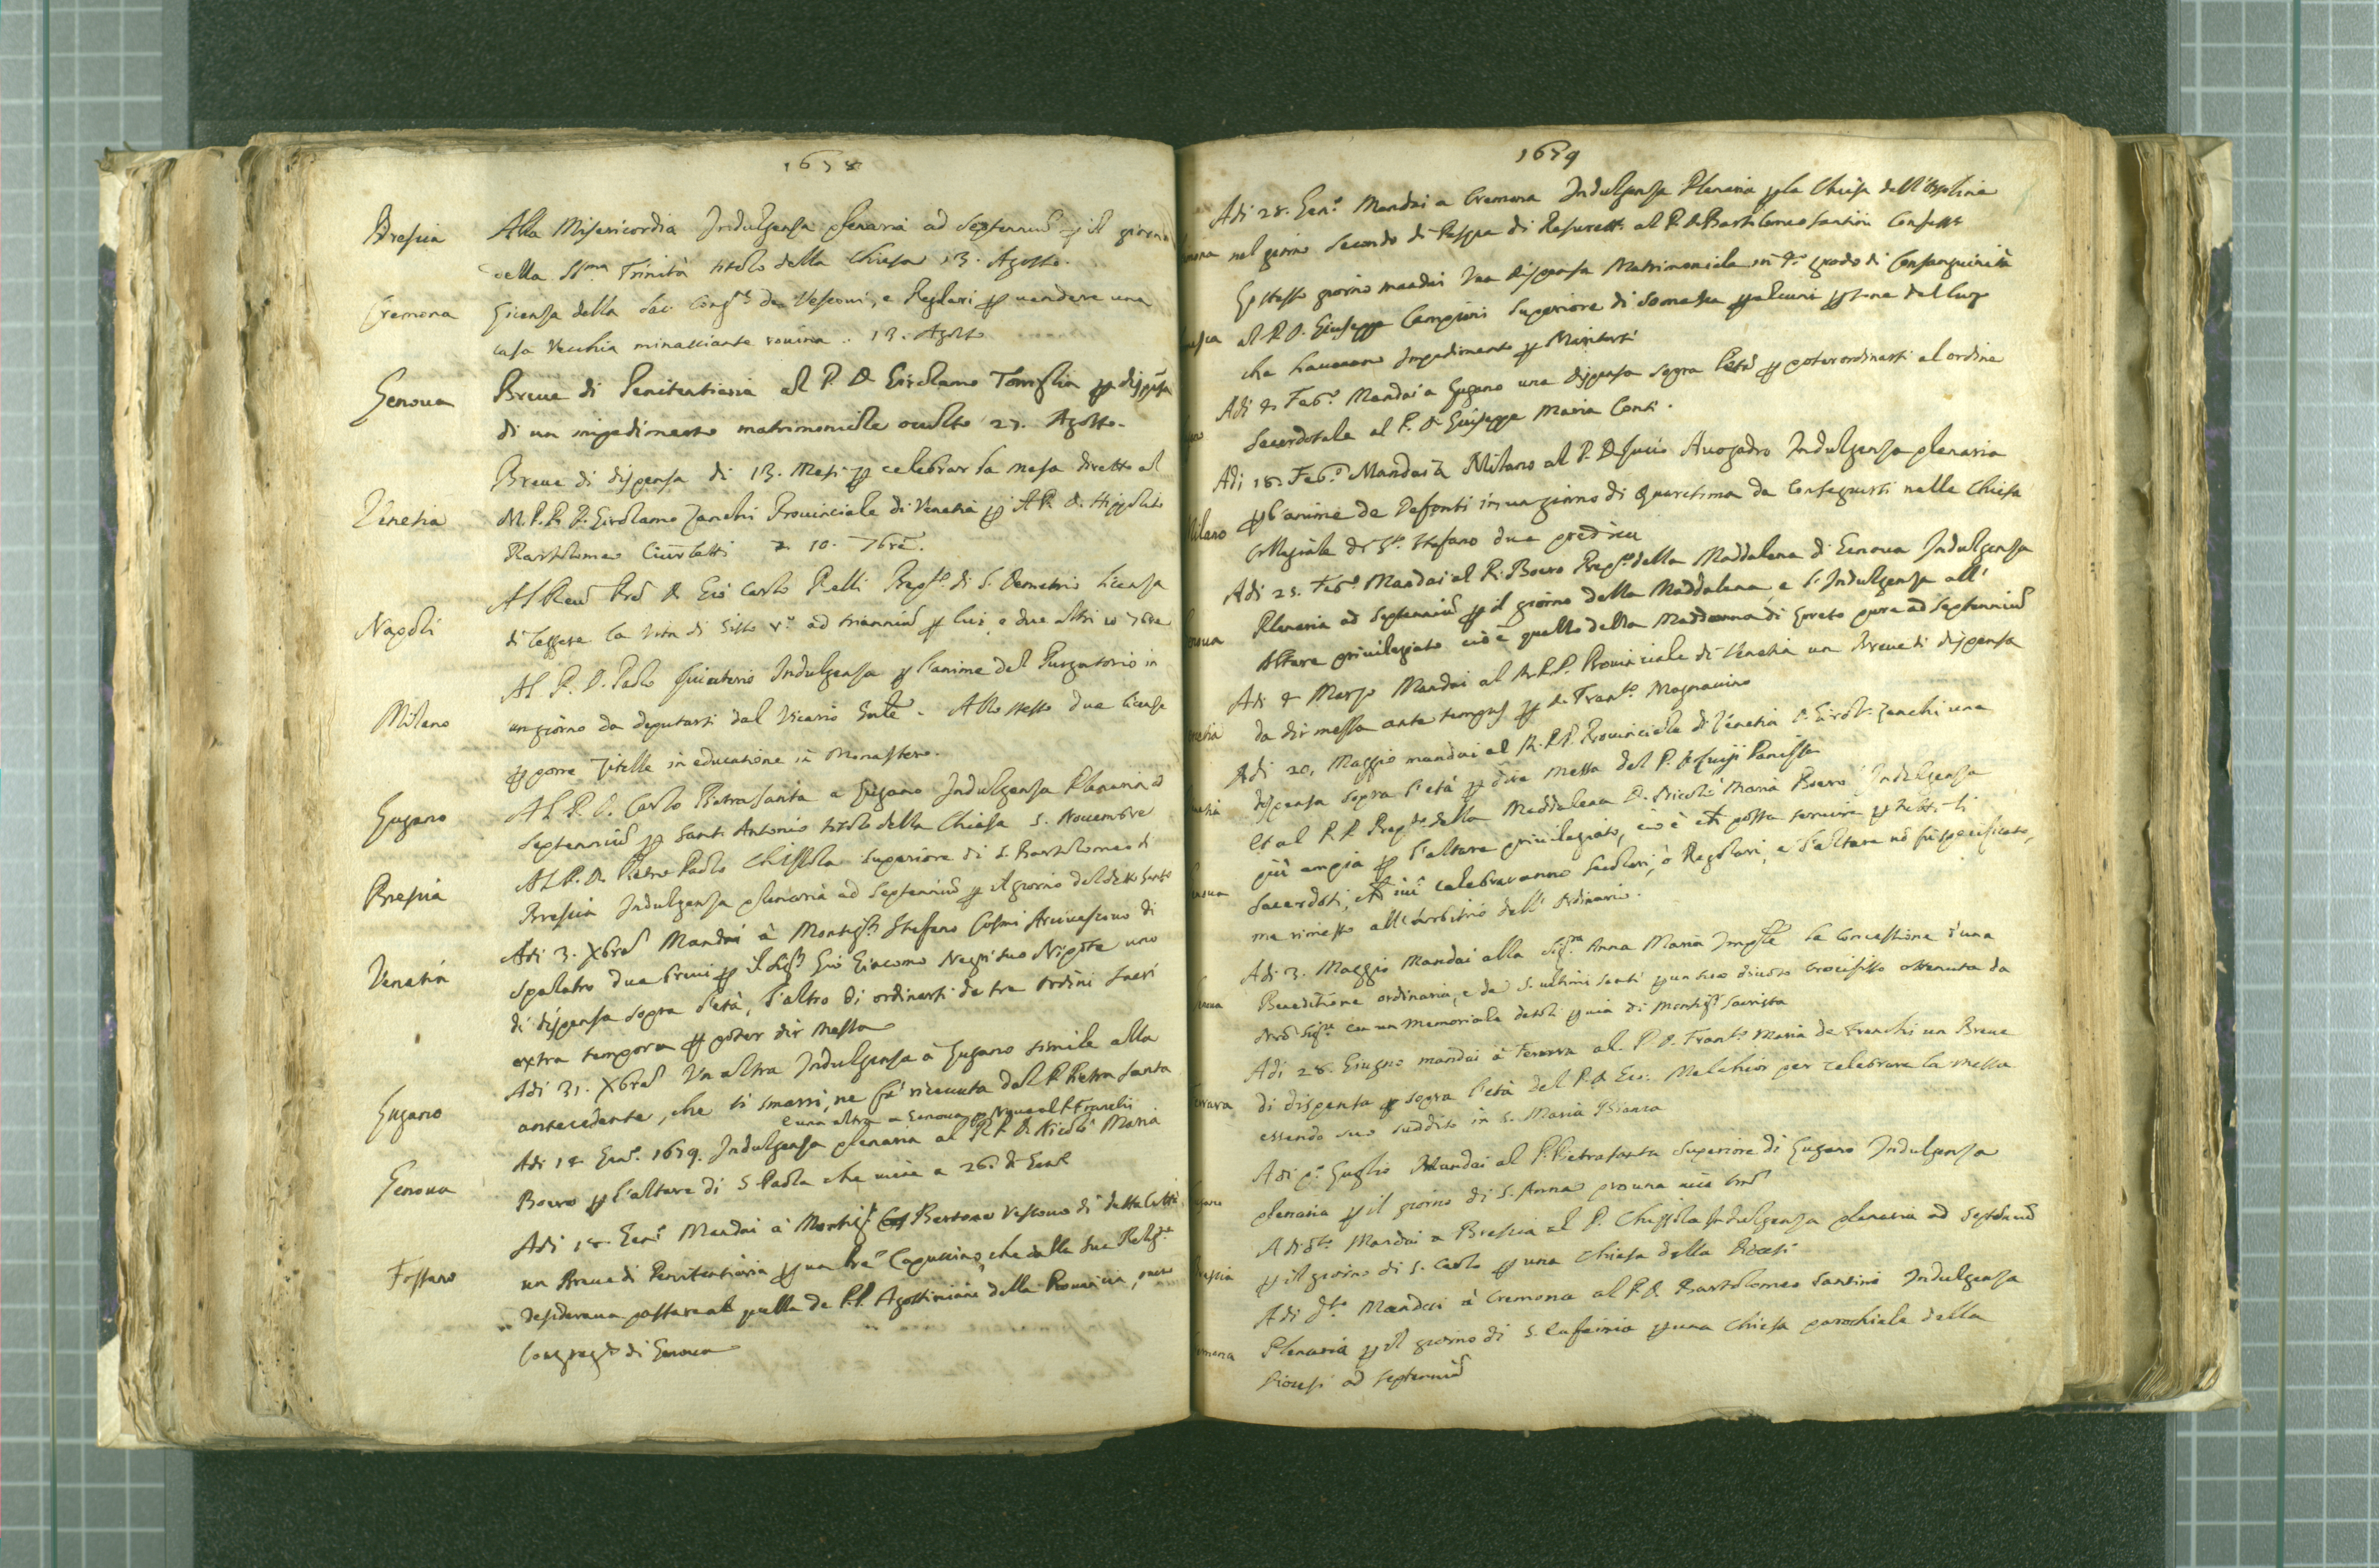 1678
Brescia Alla Misericordia Indulgenza plenaria ad septenniũ ꝑ il giorno
della SSma Trinità titolo della Chiesa 13. Agosto.
Cremona Licenza della Sac. Congne de Vescoui, e Reglari ꝑ uendere una
casa Vecchia minacciante rouina. 13. Agosto
Genoua Breue di Penitentiaria al P. D. Girolamo Torriglia ꝑ dispensa
di un impedimento matrimoniale oculto 27. Agosto.
Breue di dispensa di 13. Mesi ꝑ celebrar la messa diretto al
Venetia M. R. P. D. Girolamo Zanchi Prouinciale di Venetia ꝑ il P. D. Hippolito
Bartolomeo 10. 7bre.
Al Reud Pre D. Gio Carlo Pelli Prepto di S. Demetrio licenza
Napoli di leggere la Vita di Sisto Vo ad trienniũ ꝑ lui, e due altri 10 7bre
Al P. D. Paolo Indulgenza ꝑ l'anime del Purgatorio in
Milano un giorno da deputarsi dal Vicario Gnle. Allo stesso due licenze
ꝑ porre Zitelle in educatione in Monastero.
Al P. D. Carlo Pietrasanta a Lugano Indulgenza Plenaria ad
Lugano septenniũ ꝑ Sant Antonio titolo della Chiesa 5. Nouembre
Al P. D. Pietro Paolo Chizzola Superiore di S. Bartolomeo di
Brescia Brescia Indulgenza plenaria ad septenniũ ꝑ il giorno del detto Santo
Adi 3. Xbre Mandai à Monsigr Stefano Cosmi Arciuescouo di
Venetia Spalatro due breui ꝑ il Sigr Gio Giacomo Negri suo Nipote uno
di dispensa sopra l'età, l'altro di ordinarsi de tre ordini sacri
extra tempora ꝑ poter dir Messa
Adi 31. Xbre Un altra Indulgenza à Lugano simile alla
Lugano antecedente, che si smarrì, ne fù riceuuta dal P. Pietra Santa
e una altra a Genoua al P. Franchi
Adi 14 Geno. 1679. Indulgenza plenaria al R. P. D. Nicolò Maria
Genoua Boero ꝑ l'altare di S. Paola che uiene a 26. di Geno
Adi 18. Geno Mandai à Monsigr Bertone Vescouo di detta Città
Fossano un Breue di Penitentiaria ꝑ un Pre Capuccino, che dalla sua Religne
desideraua passare à quella de P.P. Agostiniani della Prouincia,
Congregne di Genoua
1679
Adi 28. Geno Mandai a Cremona Indulgenza Plenaria ꝑ la Chiesa dell'Orsoline
nel giorno secondo di Pasqua di Resurettne al P. D. Bartolomeo Santini Confessre
Lo stesso giorno mandai Una dispensa Matrimoniale in 4o grado di Consanguinità
al P. D. Giuseppe Campioni Superiore di Somasca ꝑ alcuni ꝑsone del luogo
che haueuano Impedimento ꝑ Maritarsi
Adi 4 Febo Mandai a Lugano una dispensa sopra l'età ꝑ poter ordinarsi al ordine
Sacerdotale al P. D. Giuseppe Maria Conti.
Adi 18. Febo Mandai à Milano al P. D. Lucio Auogadro Indulgenza plenaria
Milano ꝑ l'anime de Defonti in un giorno di Quaresima da conseguirsi nella Chiesa
Collegiata di Sto Stefano
Adi 25. Febo Mandai al P. Boero Prepto della Maddalena di Genoua Indulgenza
Plenaria ad septenniũ ꝑ il giorno della Maddalena, e l'Indulgenza all'
Altare priuilegiato cioè quello della Maddonna di Loreto pure ad septenniũ
Adi 4 Marzo Mandai al M.R.P. Prouinciale di Venetia un Breue di dispensa
da dir messa ante tempus ꝑ D. Franco Magnauino
Adi 20, Maggio mandai al M. R.P. Prouinciale di Venetia D. Girolo Zanchi una
dispensa sopra l'età ꝑ dire Messa del P. D. Luigi Panizza
Et al R. P. Prepto della Maddalena D. Nicolò Maria Boero Indulgenza
più ampia ꝑ l'altare priuilegiato, cioè che possa seruire ꝑ tutti li
Sacerdoti, che iui celebraranno Secolari, ò Regolari, e l'altare nõ fù specificato,
ma rimesso all'arbitrio dell'Ordinario.
Adi 3. Maggio Mandai alla Sigra Anna Maria la concessione d'una
Beneditione ordinaria, e de 5. ultimi santi ꝑ un suo diuoto crocifisso ottenuta da
Nrõ Sigre con un memoriale datoli ꝑ uia di Monsigr Sacrista
Adi 28. Giugno mandai à Ferrara al P. D. Franco Maria de Franchi un Breue
di dispensa ꝑ sopra l'età del P. D. Gio. Melchior per celebrare la messa
essendo suo suddito in S. Maria Bianca
Adi po Luglio Mandai al P. Pietrasanta Superiore di Lugano Indulgenza
plenaria ꝑ il giorno di S. Anna pro una uice tm
Adi dto Mandai a Brescia al P. Chizzola Indulgenza plenaria ad septenniũ
ꝑ il giorno di S. Carlo ꝑ una chiesa della Diocesi
Adi dto Mandai à Cremona al P. D. Bartolomeo Santini Indulgenza
Plenaria ꝑ il giorno di S. Eufemia ꝑ una chiesa parochiale della
Diocesi ad septenniũ